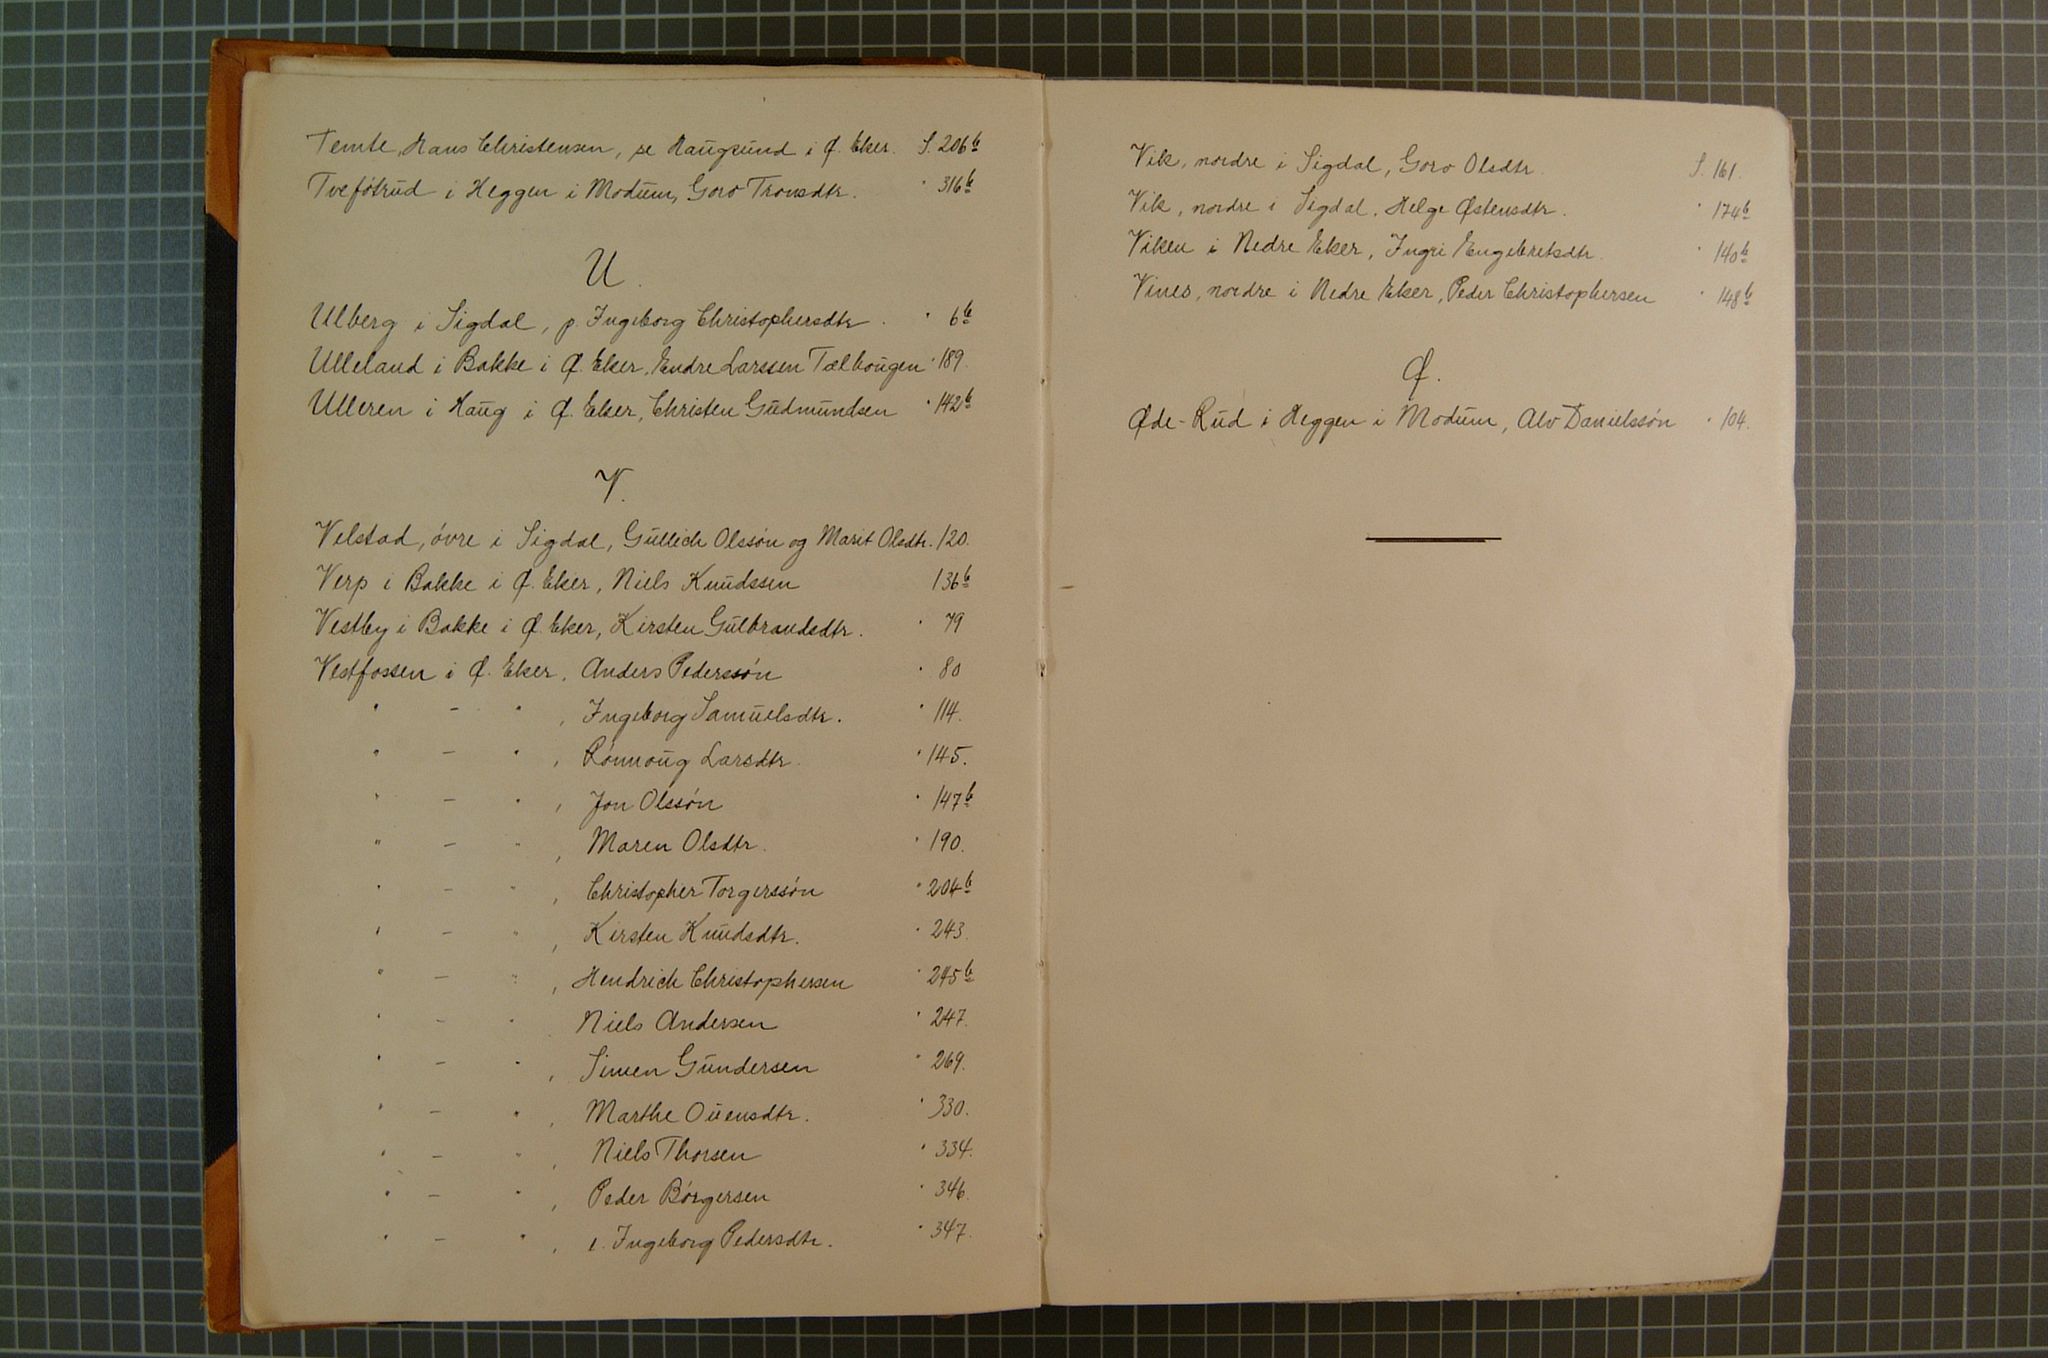 Temte, Hans Christensen, se Haugsund i Ø. Eker. S. 206b
Tvefótrud i Heggen i Modum, Goro Tronsdtr. " 316b
U.
Ulberg i Sigdal, p. Ingeborg Christophersdtr. " 6b
Ulleland i Bakke i Ø. Eker, Endre Larssen Tælhougen " 189.
Ulleren i Haug i Ø. Eker, Christen Gudmundsen " 142b
V.
Velstad, óvre i Sigdal, Gullich Olssón og Marit Olsdtr. 120.
Verp i Bakke i Ø. Eker, Niels Knudssen 136b
Vestby i Bakke i Ø. Eker, Kirsten Gulbrandsdtr. " 79
Vestfossen i Ø. Eker, Anders Pederssón " 80
" — " , Ingeborg Samuelsdtr. " 114.
" — " , Rónnoug Larsdtr. " 145.
" — " , Jon Olssón " 147b
" — " , Maren Olsdtr. " 190.
" — " , Christopher Torgerssón " 204b
" — " , Kirsten Knudsdtr. " 243.
" — " , Hendrich Christophersen " 245b
" — " , Niels Andersen " 247.
" — " , Simen Gundersen " 269.
" — " , Marthe Ouensdtr. " 330.
" — " , Niels Thorsen " 334.
" — " , Peder Bórgersen " 346.
" — " , i. Ingeborg Pedersdtr. " 347.
Vik, nordre i Sigdal, Goro Olsdtr. S. 161.
Vik, nordre i Sigdal, Helge Østensdtr. " 174b
Viken i Nedre Eker, Ingri Engebretsdtr. " 140b
Vines, nordre i Nedre Eker, Peder Christophersen " 148b
Ø.
Øde-Rud i Heggen i Modum, Alv Danielssón " 104.